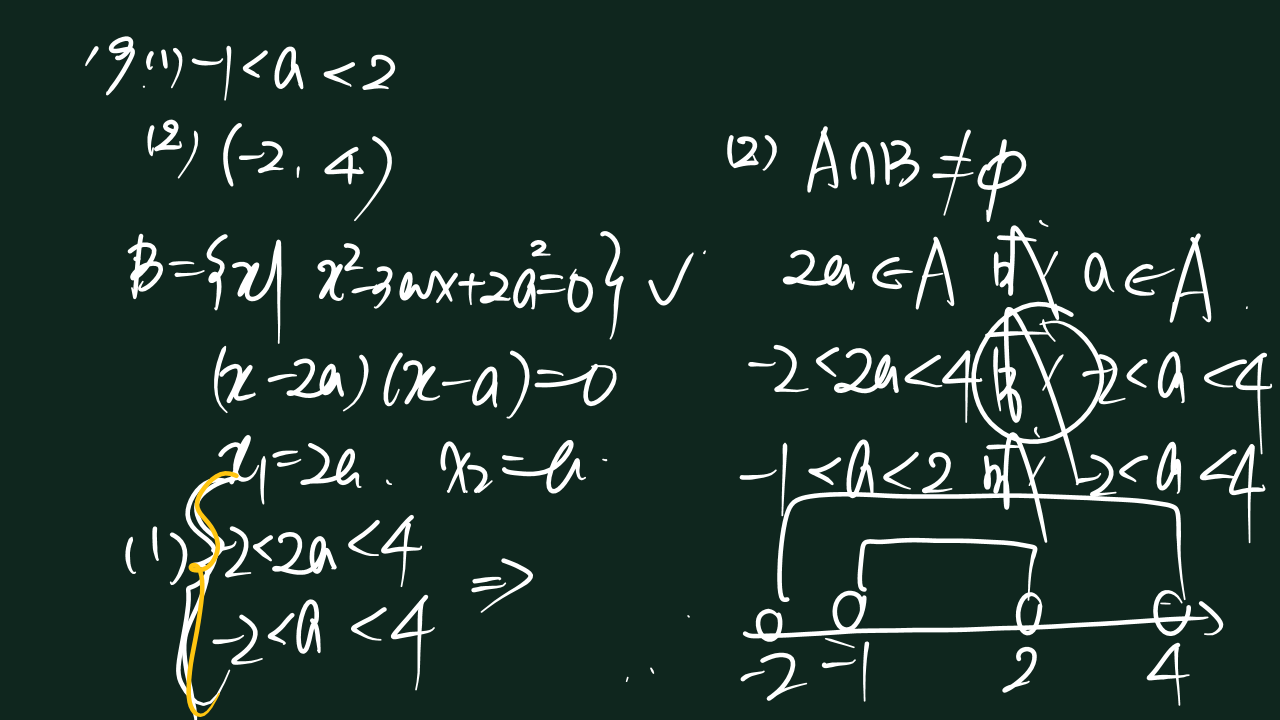 19.(1) -1<a<2
(2) (-2, 4)
B={x| x²-3ax+2a²=0} ✓
(x-2a)(x-a)=0
x₁=2a. x₂=a.
(1) {-2<2a<4
-2<a<4 ⇒
(2) A∩B≠φ
2a∈A 或 a∈A
-2<2a<4 或 -2<a<4
-1<a<2 或 -2<a<4
-2 -1 2 4